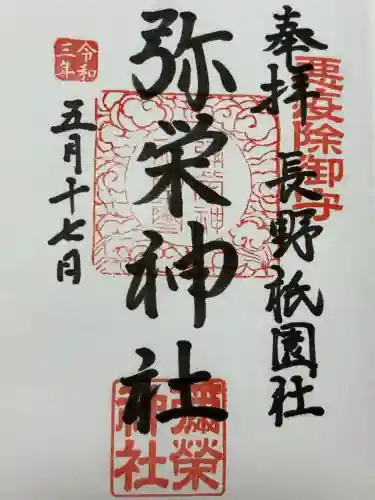 奉拝
長野祇園社
悪疫除御守
弥栄神社
彌榮
神社
令和
三年
五月十七日